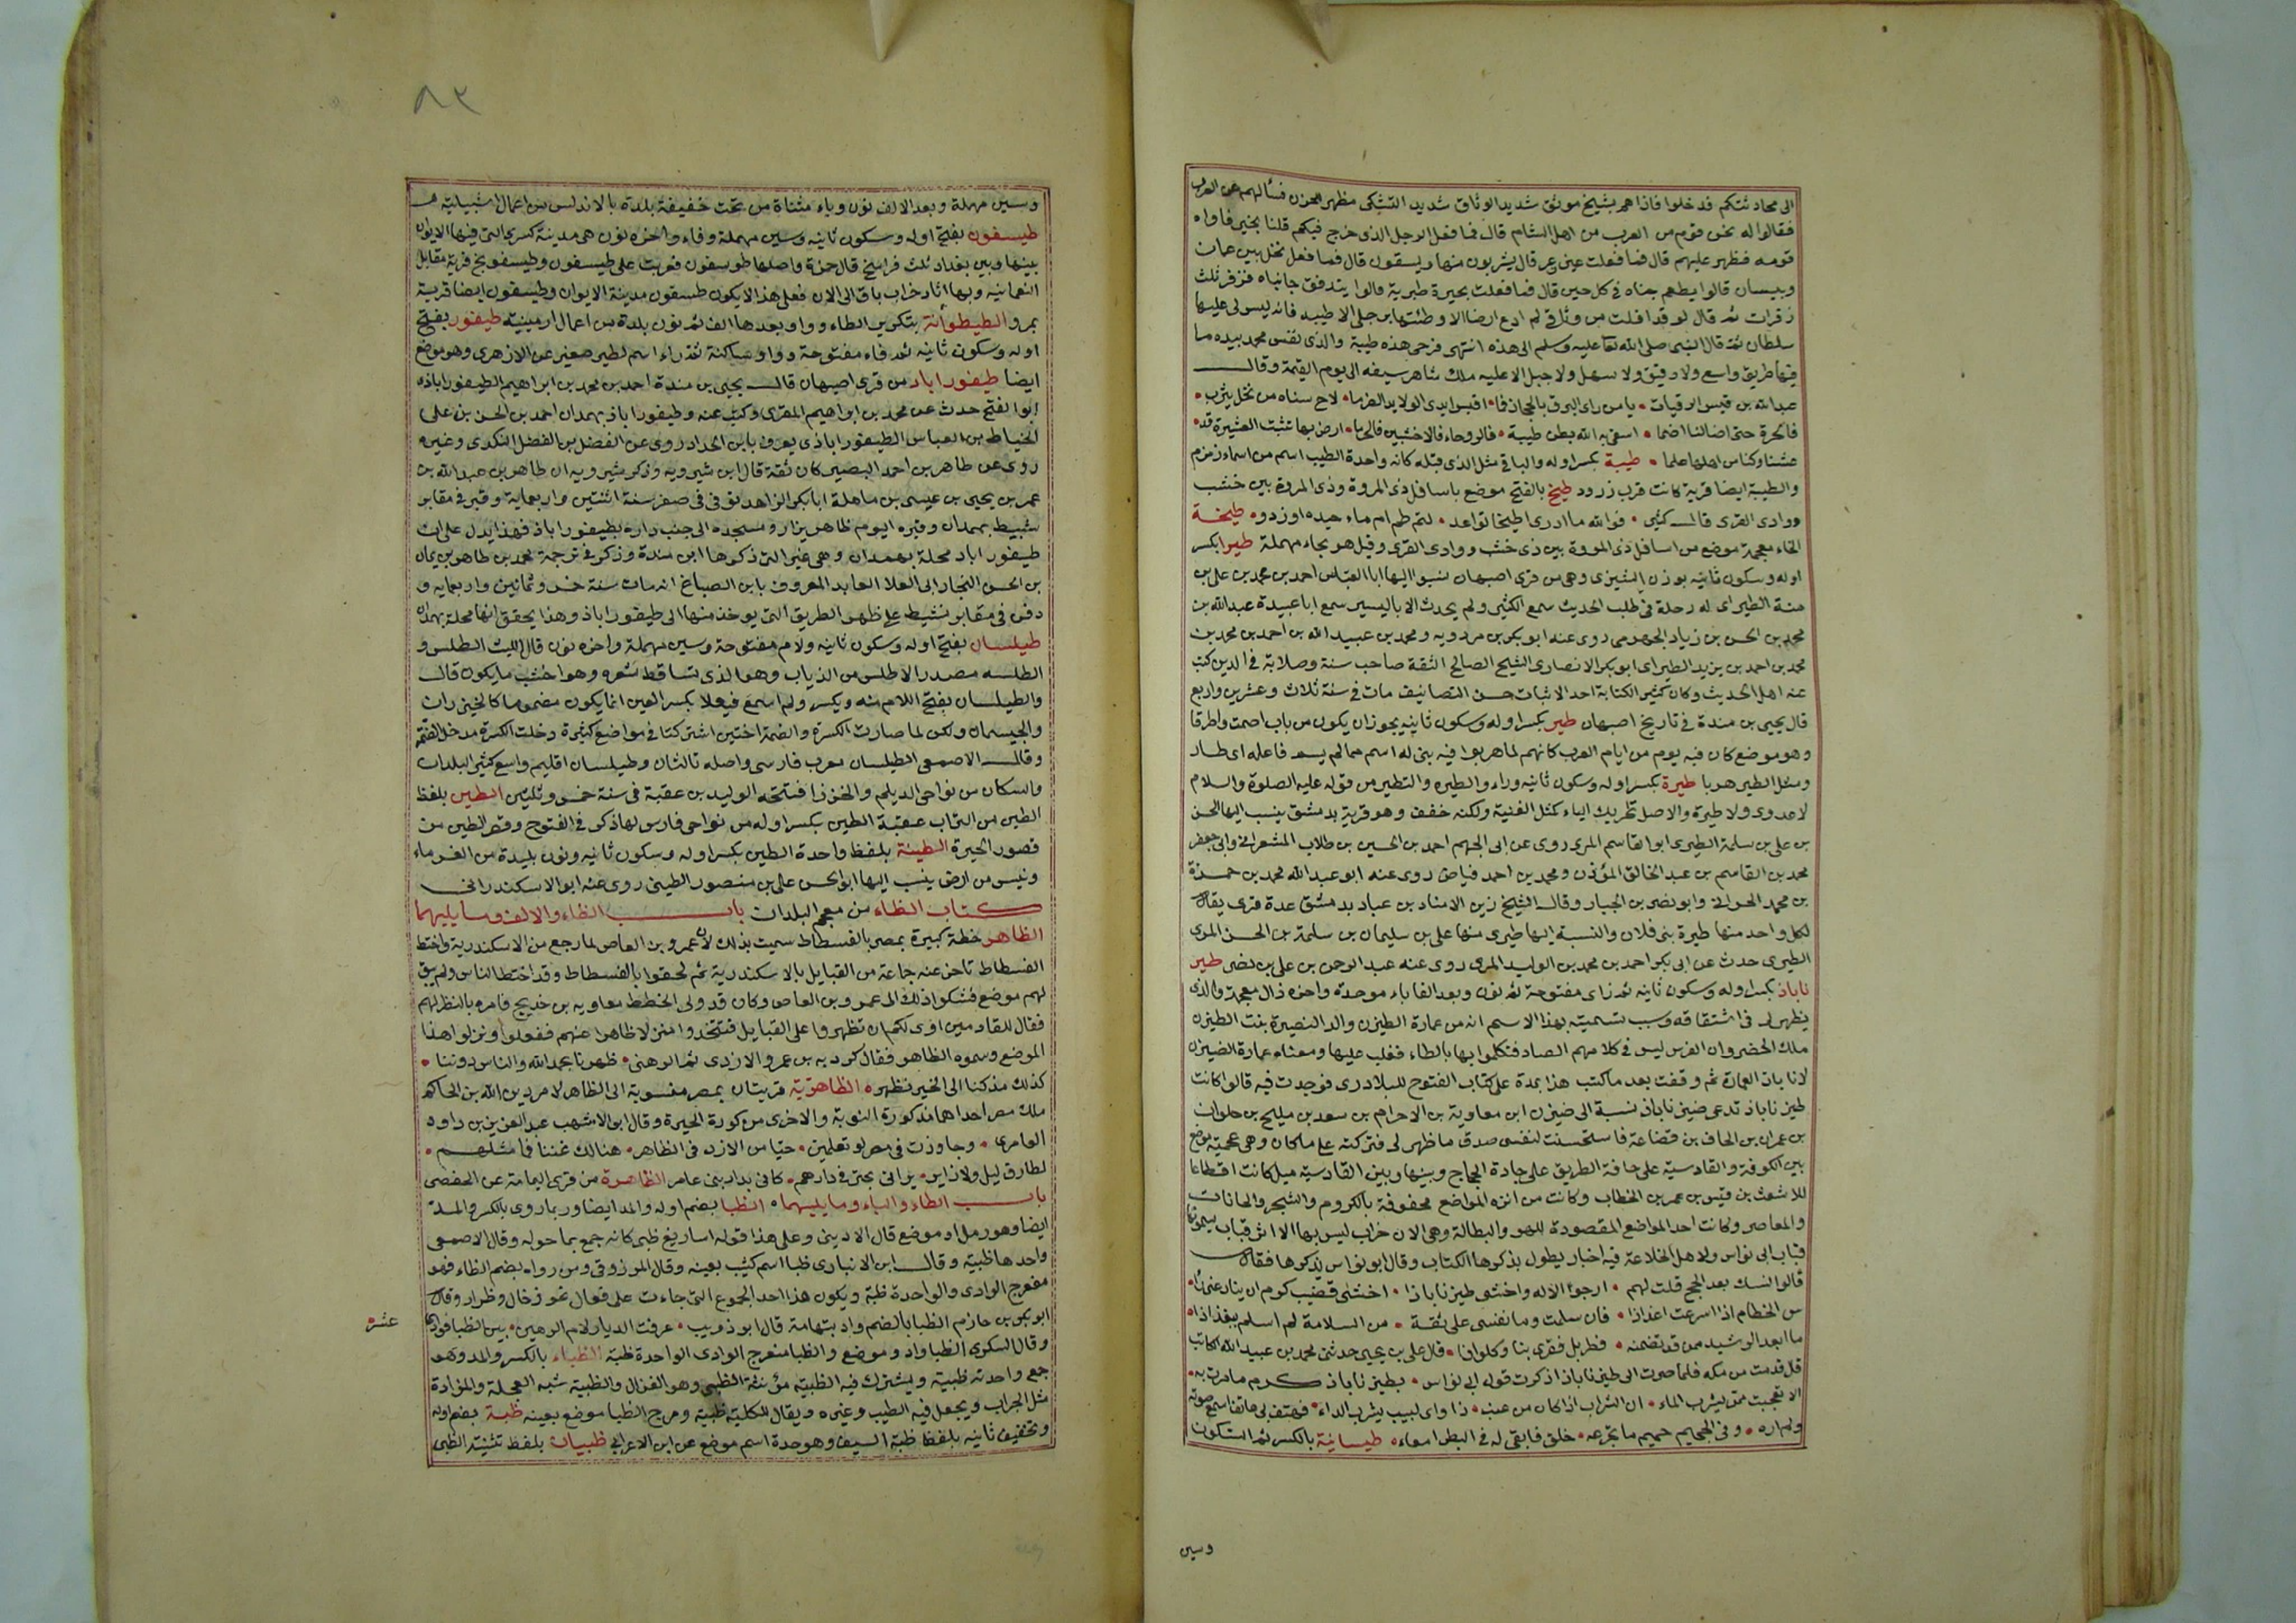 الى محادثتكم فدخلوا فاذا هم بشيخ موثق شديد الوثاق شديد التشكى مظهر الحزن فسألهم عن العرب
فقالوا له نحن قوم من العرب من اهل الشام قال فما فعل الرجل الذى خرج فيكم قلنا بخير فاواه
قومه فظهر عليهم قال فما فعلت عين زعر قال يشربون منها ويسقون قال فما فعل نخل بين عمان
وبيسان قالوا يطعم جناه فى كل حين قال فما فعلت بحيرة طبرية قالوا يتدفق جانباه فزفر ثلث
زفرات ثم قال لو قد افلت من وثاقى لم ادع ارضا الا وطئتها برجلى الا طيبه فانه ليس لى عليها
سلطان ثم قال النبى صلى الله تعا عليه وسلم الى هذه انتهى فرحى هذه طيبة والذى نفس محمد بيده ما
فيها طريق واسع ولا دقيق ولا سهل ولا جبل الا عليه ملك شاهر سيفه الى يوم القيمة وقال
عبدالله بن قيس الرقيات • يا من راى البرق بالحجاز فما • اقبس ايدى الولايد الضرما • لاح سناه من نخل يثرب •
فالحرة حتى اضا لنا اضما • اسقى به الله بطن طيبة • فالروحاء فالاخشبين فالحرما • ارض بها تثبت العشيرة قد •
عشنا وكنا من اهلها علما • طيبة بكسر اوله والباقى مثل الذى قبله كانه واحدة الطيب اسم من اسماء زمزم
والطيبة ايضا قرية كانت قرب زرود طيخ بالفتح موضع باسافل ذى المروة وذى المروة بين خشب
ووادى القرى قال كثير • فوالله ما ادرى اطيخا تواعد • لتم ظم ام ماء حيده اوردو • طيخة
الخاء معجمة موضع من اسافل ذى المروة بين ذى خشب ووادى القرى وقيل هو بحاء مهملة طيرا بكسر
اوله وسكون ثانيه بوزن الشيزى وهى من قرى اصبهان نسبوا اليها ابا العباس احمد بن محمد بن على بن
متة الطيراى له رحلة فى طلب الحديث سمع الكثير ولم يحدث الا باليسير سمع ابا عبيدة عبدالله بن
محمد بن الحسن بن زياد الجهرمى روى عنه ابو بكر بن مردويه ومحمد بن عبيد الله بن احمد بن محمد بن
محمد بن احمد بن يزيد الطيراى ابو بكر الانصارى الشيخ الصالح الثقة صاحب سنة وصلابة فى الدين كتب
عنه اهل الحديث وكان كثير الكتابة احد الاثبات حسن التصانيف مات فى سنة ثلاث وعشرين واربع
قال يحيى بن مندة فى تاريخ اصبهان طير بكسر اوله وسكون ثانيه يجوز ان يكون من باب اصمت واطرقا
وهو موضع كان فيه يوم من ايام العرب كانهم لما هربوا فيه بنى له اسم مما لم يسم فاعله اى طار
ومثل الطير هربا طيرة بكسر اوله وسكون ثانيه وراء والطيره والتطير من قوله عليه الصلوة والسلام
لا عدوى ولا طيرة والاصل تحريك الياء كمثل الغنية ولكنه خفف وهو قرية بدمشق ينسب اليها الحسن
بن على بن سلمة الطيرى ابو القاسم المرى روى عن ابى الجهم احمد بن الحسين بن طلاب المشعرانى وابى جعفر
محمد بن القاسم بن عبد الخالق المؤذن ومحمد بن احمد فياض روى عنه ابو عبد الله محمد بن حمزة
بن محمد الحرانى وابو نصر بن الجبار وقال الشيخ زين الامناد بن عباد بدمشق عدة قرى يقال
لكل واحد منها طيرة بنى فلان والنسبة اليها طيرى منها على بن سليمان بن سلمة بن الحسن المرى
الطيرى حدث عن ابى بكر احمد بن محمد بن الوليد المرى روى عنه عبد الرحمن بن على بن نصر طيز
ناباذ بكسر اوله وسكون ثانيه ثم زاى مفتوحة ثم نون وبعد الفا باء موحدة واخره ذال معجمة والذى
يظهر لى فى اشتقاقه وسبب تسميته بهذا الاسم انه من عمارة الطيزن والد النضيرة بنت الطيزن
ملك الحضر وان الفرس ليس فى كلامهم الضاد فتكلموا بها بالطاء فغلب عليها ومعناه عمارة الضيزن
لان اباذ العمارة ثم وقفت بعد ما كتب هذا بمدة على كتاب الفتوح للبلادرى فوجدت فيه قالوا كانت
طيز ناباذ تدعى ضيز ناباذ نسبة الى ضيزن ابن معاوية بن الاحرام بن سعد بن مليح بن حلوان
بن عمران بن الحاف بن قضاعة فاستحسنت لنفسى صدق ما ظهر لى فتركته على ما كان وهى عجمية موضع
بين الكوفة والقادسية على حافة الطريق على جادة الحجاج وبينها وبين القادسية ميل كانت اقطاعا
للاشعث بن قيس بن عمر بن الخطاب وكانت من انزه المواضع محفوفة بالكروم والشجر والحانات
والمعاصر وكانت احد المواضع المقصودة للهو والبطالة وهى الان خراب ليس بها الا اثر قباب يسمونها
قباب ابى نواس ولاهل الخلاعة فيه اخبار يطول بذكرها الكتاب وقال ابو نواس يذكرها فقال
قالوا تنسك بعد الحج قلت لهم • ارجو الاله واخشى طيز ناباذا • اخشى قضيب كرم ان ينازعنى
س الخطام اذا اسرعت اغذاذا • فان سلمت وما نفسى على ثقة • من السلامة لم اسلم ببغذاذا
ما ابعد الرشيد ممن قد تضمنه • قطربل فقرى بنا وكلواذا • قال على بن يحيى حدثنى محمد بن عبيد الله الكاتب
قال قدمت من مكه فلما صرت الى طيز ناباذ اذكرت قول ابى نواس • بطيز ناباذ كرم ما مررت به •
الا تعجبت ممن يشرب الماء • ان الشراب اذا كان من عنب • داء واى لبيب يشرب الداء • فهتف بى هاتف اسمع صوته
ولم اره • وفى الجحيم حميم ما تجرعه • خلق فابقى له فى البطن امعاء • طيسانية بالكسر ثم السكون
وسين
٨٣
وسين مهملة وبعد الالف نون وياء مثناة من تحت خفيفة بلدة بالاندلس من اعمال اشبيلية
طيسفون بفتح اوله وسكون ثانيه وسين مهملة وفاء واخره نون هى مدينة كسرى التى فيها الايوان
بينها وبين بغداد ثلث فراسخ قال حمزة واصلها طوسفون فعربت على طيسفون وطيسفونج قرية مقابل
النعمانية وبها اثار خراب باق الى الان فعلى هذا لا يكون طسفون مدينة الايوان وطيسفون ايضا قرية
بمرو الطيطوانة بتكرير الطاء وواو بعدها الف ثم نون بلدة من اعمال ارمينية طيفور بفتح
اوله وسكون ثانيه ثم فاء مفتوحة وواو ساكنة ثم راء اسم لطير صغير عن الازهرى وهو موضع
ايضا طيفورا باد من قرى اصبهان قال يحيى بن مندة احمد بن محمد بن ابراهيم الطيفوراباذى
ابو الفتح حدث عن محمد بن ابراهيم المقرى وكتب عنه وطيفوراباذ بهمدان احمد بن الحسن بن على
الخياط بن العباس الطيفوراباذى يعرف بابن الحداد روى عن الفضل بن الفضل الكندى وغيره
روى عن طاهر بن احمد البصير كان ثقة قال ابن شيرويه وذكر شيرويه ان طاهر بن عبدالله بن
عمر بن يحيى بن عيسى بن ماهلة ابابكر الزاهد توفى فى صفر سنة اثنتين واربعماية وقبر فى مقابر
نشيط بهمدان وقبره اليوم ظاهر يزار ومسجده الى جنب داره بطيفوراباذ فهذا يدل على ان
طيفوراباد محلة بهمدان وهى غير التى ذكرها ابن مندة وذكر فى ترجمة محمد بن طاهر بن يمان
بن الحسن النجار ابى العلا العابد المعروف بابن الصباغ انه مات سنة خمس وثمانين واربعمايه و
دفن فى مقابر نشيط على ظهر الطريق التى يوخذ منها الى طيفوراباذ وهذا يحقق انها محلة بهمدان
طيلسان بفتح اوله وسكون ثانيه ولام مفتوحة وسين مهملة واخره نون قال الليث الطلس و
الطلسه مصدر الاطلس من الذياب وهو الذى تساقط شعره وهو اخشب مايكون قال
والطيلسان بفتح اللام منه ويكسر ولم اسمع فيعلا بكسر العين انما يكون مضموما كالخيزران
والجيسمان ولكن لما صارت الكسرة والضمة اختين اشتركتا فى مواضع كثيرة دخلت الكسرة مدخل الضمة
وقال الاصمعى الطيلسان معرب فارسى واصله تالشان وطيلسان اقليم واسع كثير البلدان
والسكان من نواحى الديلم والخزر افتتحه الوليد بن عقبة فى سنة خمس وثلثين الطين بلفظ
الطين من التراب عقبة الطين بكسر اوله من نواحى فارس لها ذكر فى الفتوح وقصر الطين من
قصور الحيرة الطينة بلفظ واحدة الطين بكسر اوله وسكون ثانيه ونون بليدة من الفرماء
وتنيس من ارض ينسب اليها ابو الحسن على بن منصور الطينى روى عنه ابو الاسكندرانى
كتاب الظاء من معجم البلدان باب الظاء والالف وما يليهما
الظاهر خطة كبيرة بمصر بالفسطاط سميت بذلك لان عمرو بن العاص لما رجع من الاسكندرية واختط
الفسطاط تاخر عنه جماعة من القبايل بالاسكندرية ثم لحقوا بالفسطاط وقد اختط الناس ولم يبق
لهم موضع فشكوا ذلك الى عمرو بن العاص وكان قد ولى الخطط معاويه بن خديج فامره بالنظر لهم
فقال للقادمين ارى لكم ان تظهروا على القبايل فتتخذوا منزلا ظاهرا عنهم ففعلوا ونزلوا هذا
الموضع وسموه الظاهر فقال كردبه بن عمرو الازدى ثم الرهنى • ظهرنا بحمد الله والناس دوننا •
كذلك مذ كنا الى الخير نظهر • الظاهرية قريتان بمصر منسوبة الى الظاهر لامر دين الله بن الحاكم
ملك مصر احداهما من كورة النوبة والاخرى من كورة الحيرة وقال ابو الاشهب عبد العزيز بن داود
العامرى • وجاوزت فى مصر لو تعلمين • حيا من الازد فى الظاهر • هنالك غثنا فما مثلهم •
لطارق ليل ولا زاير • يرانى بحتر فى دارهم • كانى بدار بنى عامر الظاهرة من قرى اليمامة عن الحفصى
باب الظاء والباء وما يليهما الظبا بضم اوله والمد ايضا وربما روى بالكسر والمد
ايضا وهو رمل او موضع قال الادينى وعلى هذا قوله اساريع ظبى كانه جمع بما حوله وقال الاصمعى
واحدها ظبية وقال ابن الانبارى ظبا اسم كثيب بعينه وقال المرزوقى ومن رواه بضم الظاء فهو
مفعرج الوادى والواحدة ظبة ويكون هذا احد الجموع التى جاءت على فعال نحو رخال وظرار وقال
ابو بكر بن حازم الظبا بالضم واد بتهامة قال ابو ذويب • عرفت الديار لام الرهين • بين الظبا فوادى
عشر
وقال السكرى الظبا واد وموضع والظبا منعرج الوادى الواحدة ظبة الظباء بالكسر والمد وهو
جمع واحدته ظبية ويشترك فيه الظبية مؤنثة الظبى وهو الغزال والظبية شبه العجلة والمزادة
مثل الجراب ويجعل فيه الطيب وغيره ويقال للكلية ظبية ومرج الظبا موضع بعينه ظبة بضم اوله
وتخفيف ثانيه بلفظ ظبة السيف وهو حدة اسم موضع عن ابن الاعرابى ظبيان بلفظ تثنية الظبى